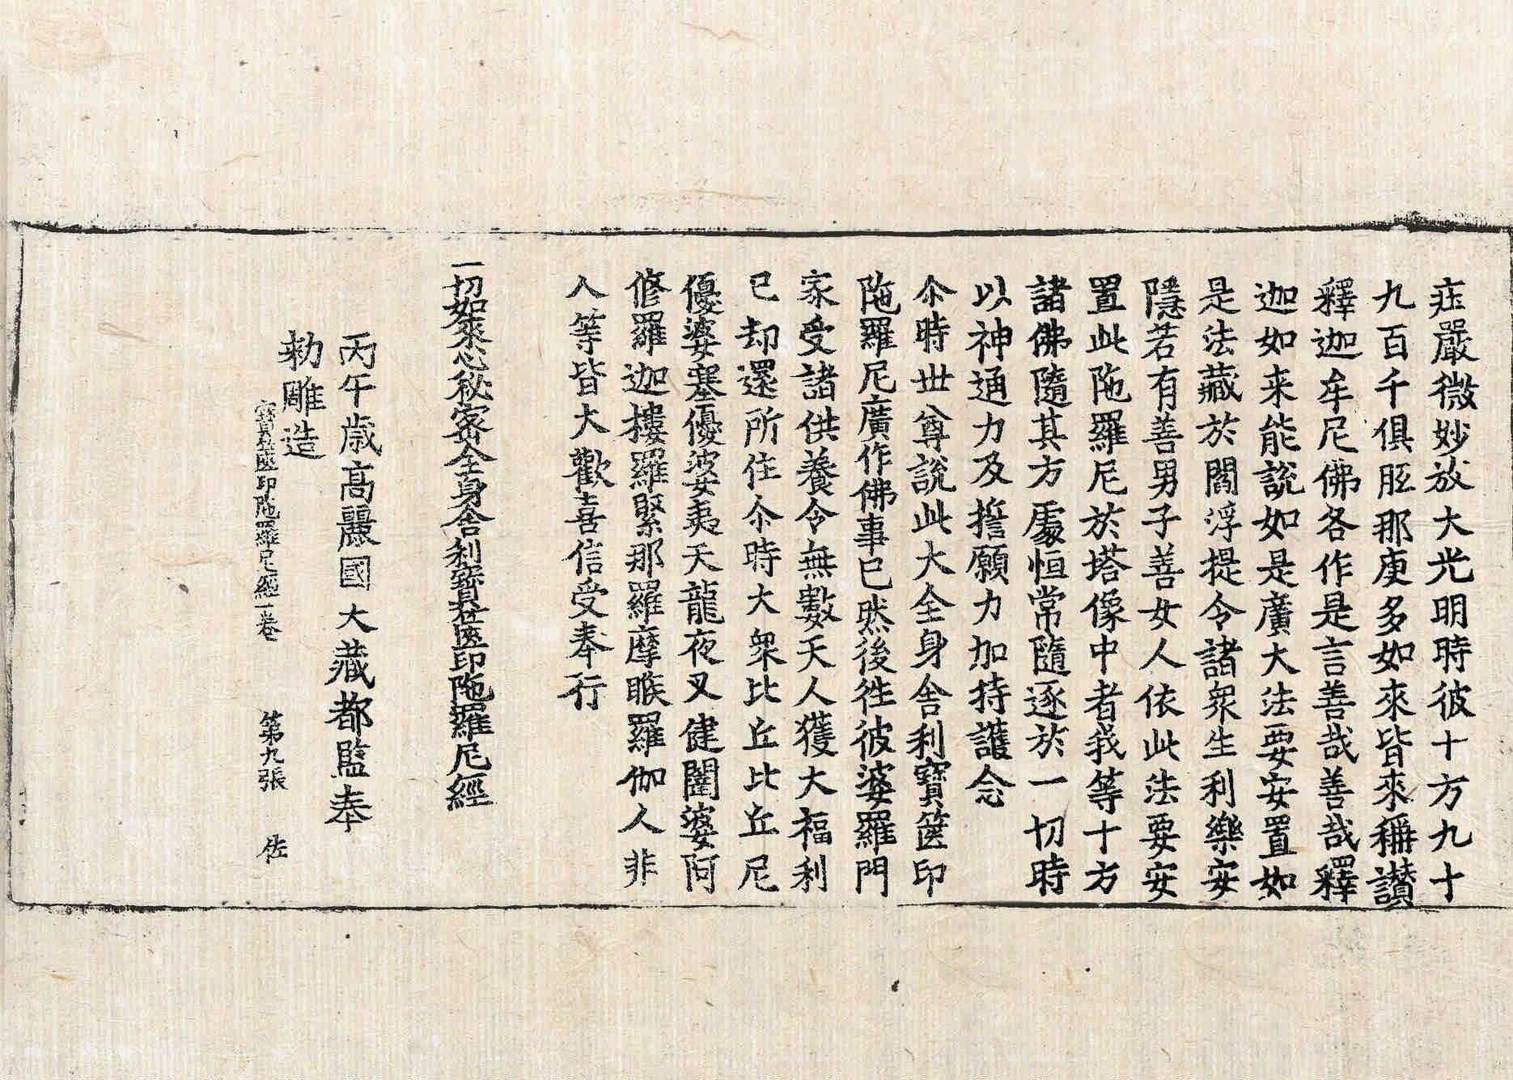 庄嚴微妙放大光明時彼十方九十
九百千俱胝那庾多如來皆來稱讃
釋迦牟尼佛各作是言善哉善哉釋
迦如来能說如是廣大法要安置如
是法藏於閻浮提令諸衆生利樂安
隱若有善男子善女人依此法要安
置此陁羅尼於塔像中者我等十方
諸佛隨其方處恒常隨逐於一切時
以神通力及誓願力加持護念
尒時世尊說此大全身舎利寳篋印
陁羅尼廣作佛事已然後徃彼婆羅門
家受諸供養令無數天人獲大福利
已却還所住尒時大衆比丘比丘尼
優婆塞優婆夷天龍夜叉健闥婆阿
修羅迦樓羅緊那羅摩睺羅伽人非
人等皆大歡喜信受奉行
一切如来心秘密全身舎利寳篋印陁羅尼經
丙午歳高麗國大藏都監奉
勑雕造
寳篋印陁羅尼經一卷 第九張 佐